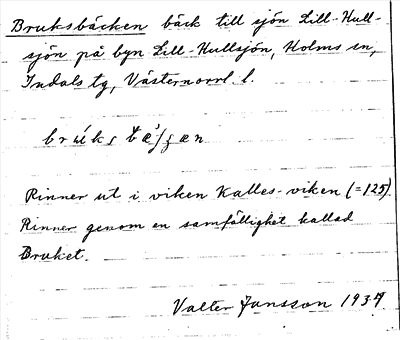 Bruksbäcken bäck till sjön Lill-Hull-
sjön på byn Lill-Hullsjön, Holms sn,
Indals tg, Västernorrl. l.
Rinner ut i viken Kalles-viken (=125)
Rinner genom en samfällighet kallad
Bruket.
Valter Jansson 1934